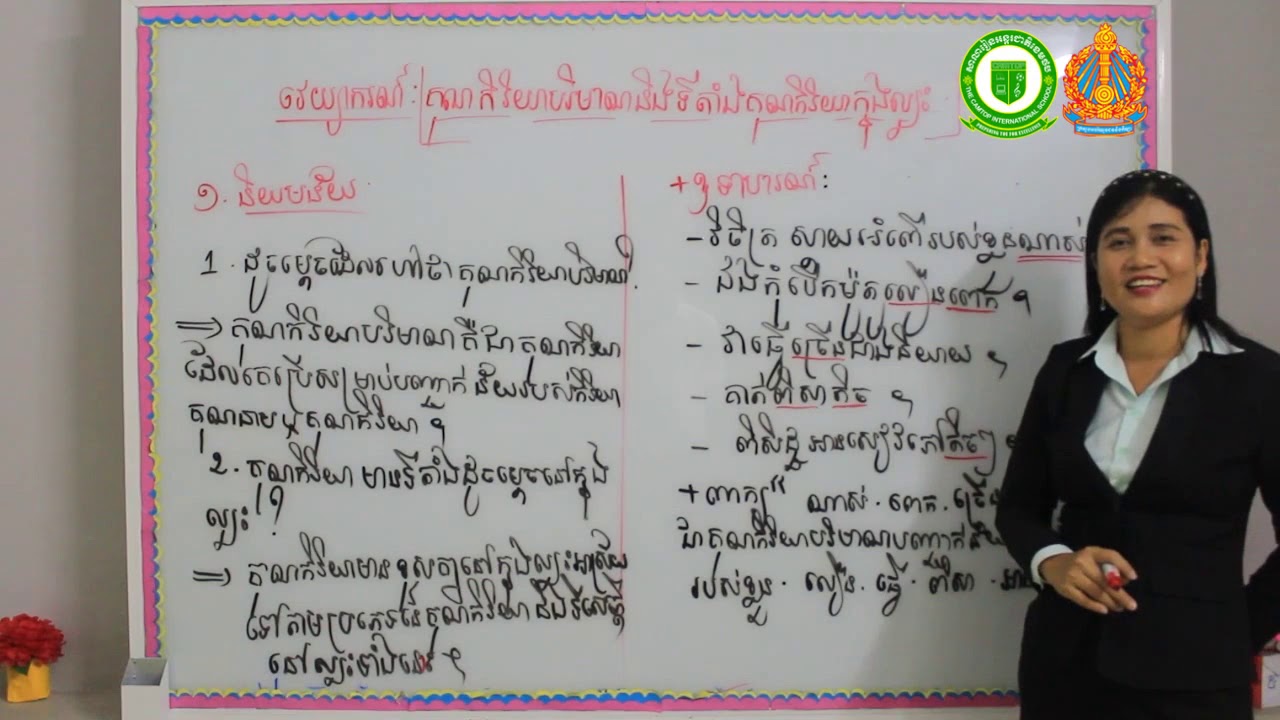 វេយ្យាករណ៍៖ គុណកិរិយាបរិមាណនិងទីតាំងគុណកិរិយាក្នុងល្បះ
១. និយមន័យ
1. ដូចម្ដេចដែលហៅថា គុណកិរិយាបរិមាណ?
=> គុណកិរិយាបរិមាណ គឺជាគុណកិរិយា
ដែលគេប្រើសម្រាប់បញ្ជាក់ ន័យរបស់កិរិយា
គុណនាម ឬ គុណកិរិយា ។
2. គុណកិរិយា មានទីតាំងដូចម្ដេចនៅក្នុង
ល្បះ ?
=> គុណកិរិយាមាន នៅក្នុងល្បះអាស្រ័យ
ទៅតាមប្រភេទនៃគុណកិរិយា និង
នៅល្បះទាំងនោះ ។
+ ឧទាហរណ៍:
- វិចិត្រ ស្តាយអំពើរបស់ខ្លួនណាស់
- ជិះកុំបើកម៉ូតូលឿនពេក ។
- វាធ្វើច្រើនជាងនិយាយ ។
- គាត់ពិសាតិច ។
- ពិសិដ្ឋ អានសៀវភៅតិចៗ ។
+ ពាក្យ " ណាស់ . ពេក . ច្រើន
ជាគុណកិរិយាបរិមាណបញ្ជាក់ន័យ
របស់ខ្លួន . លឿន . ធ្វើ . ពិសា . អាន
សាលារៀនអន្តរជាតិខេមថប
CAMTOP
THE CAMTOP INTERNATIONAL SCHOOL